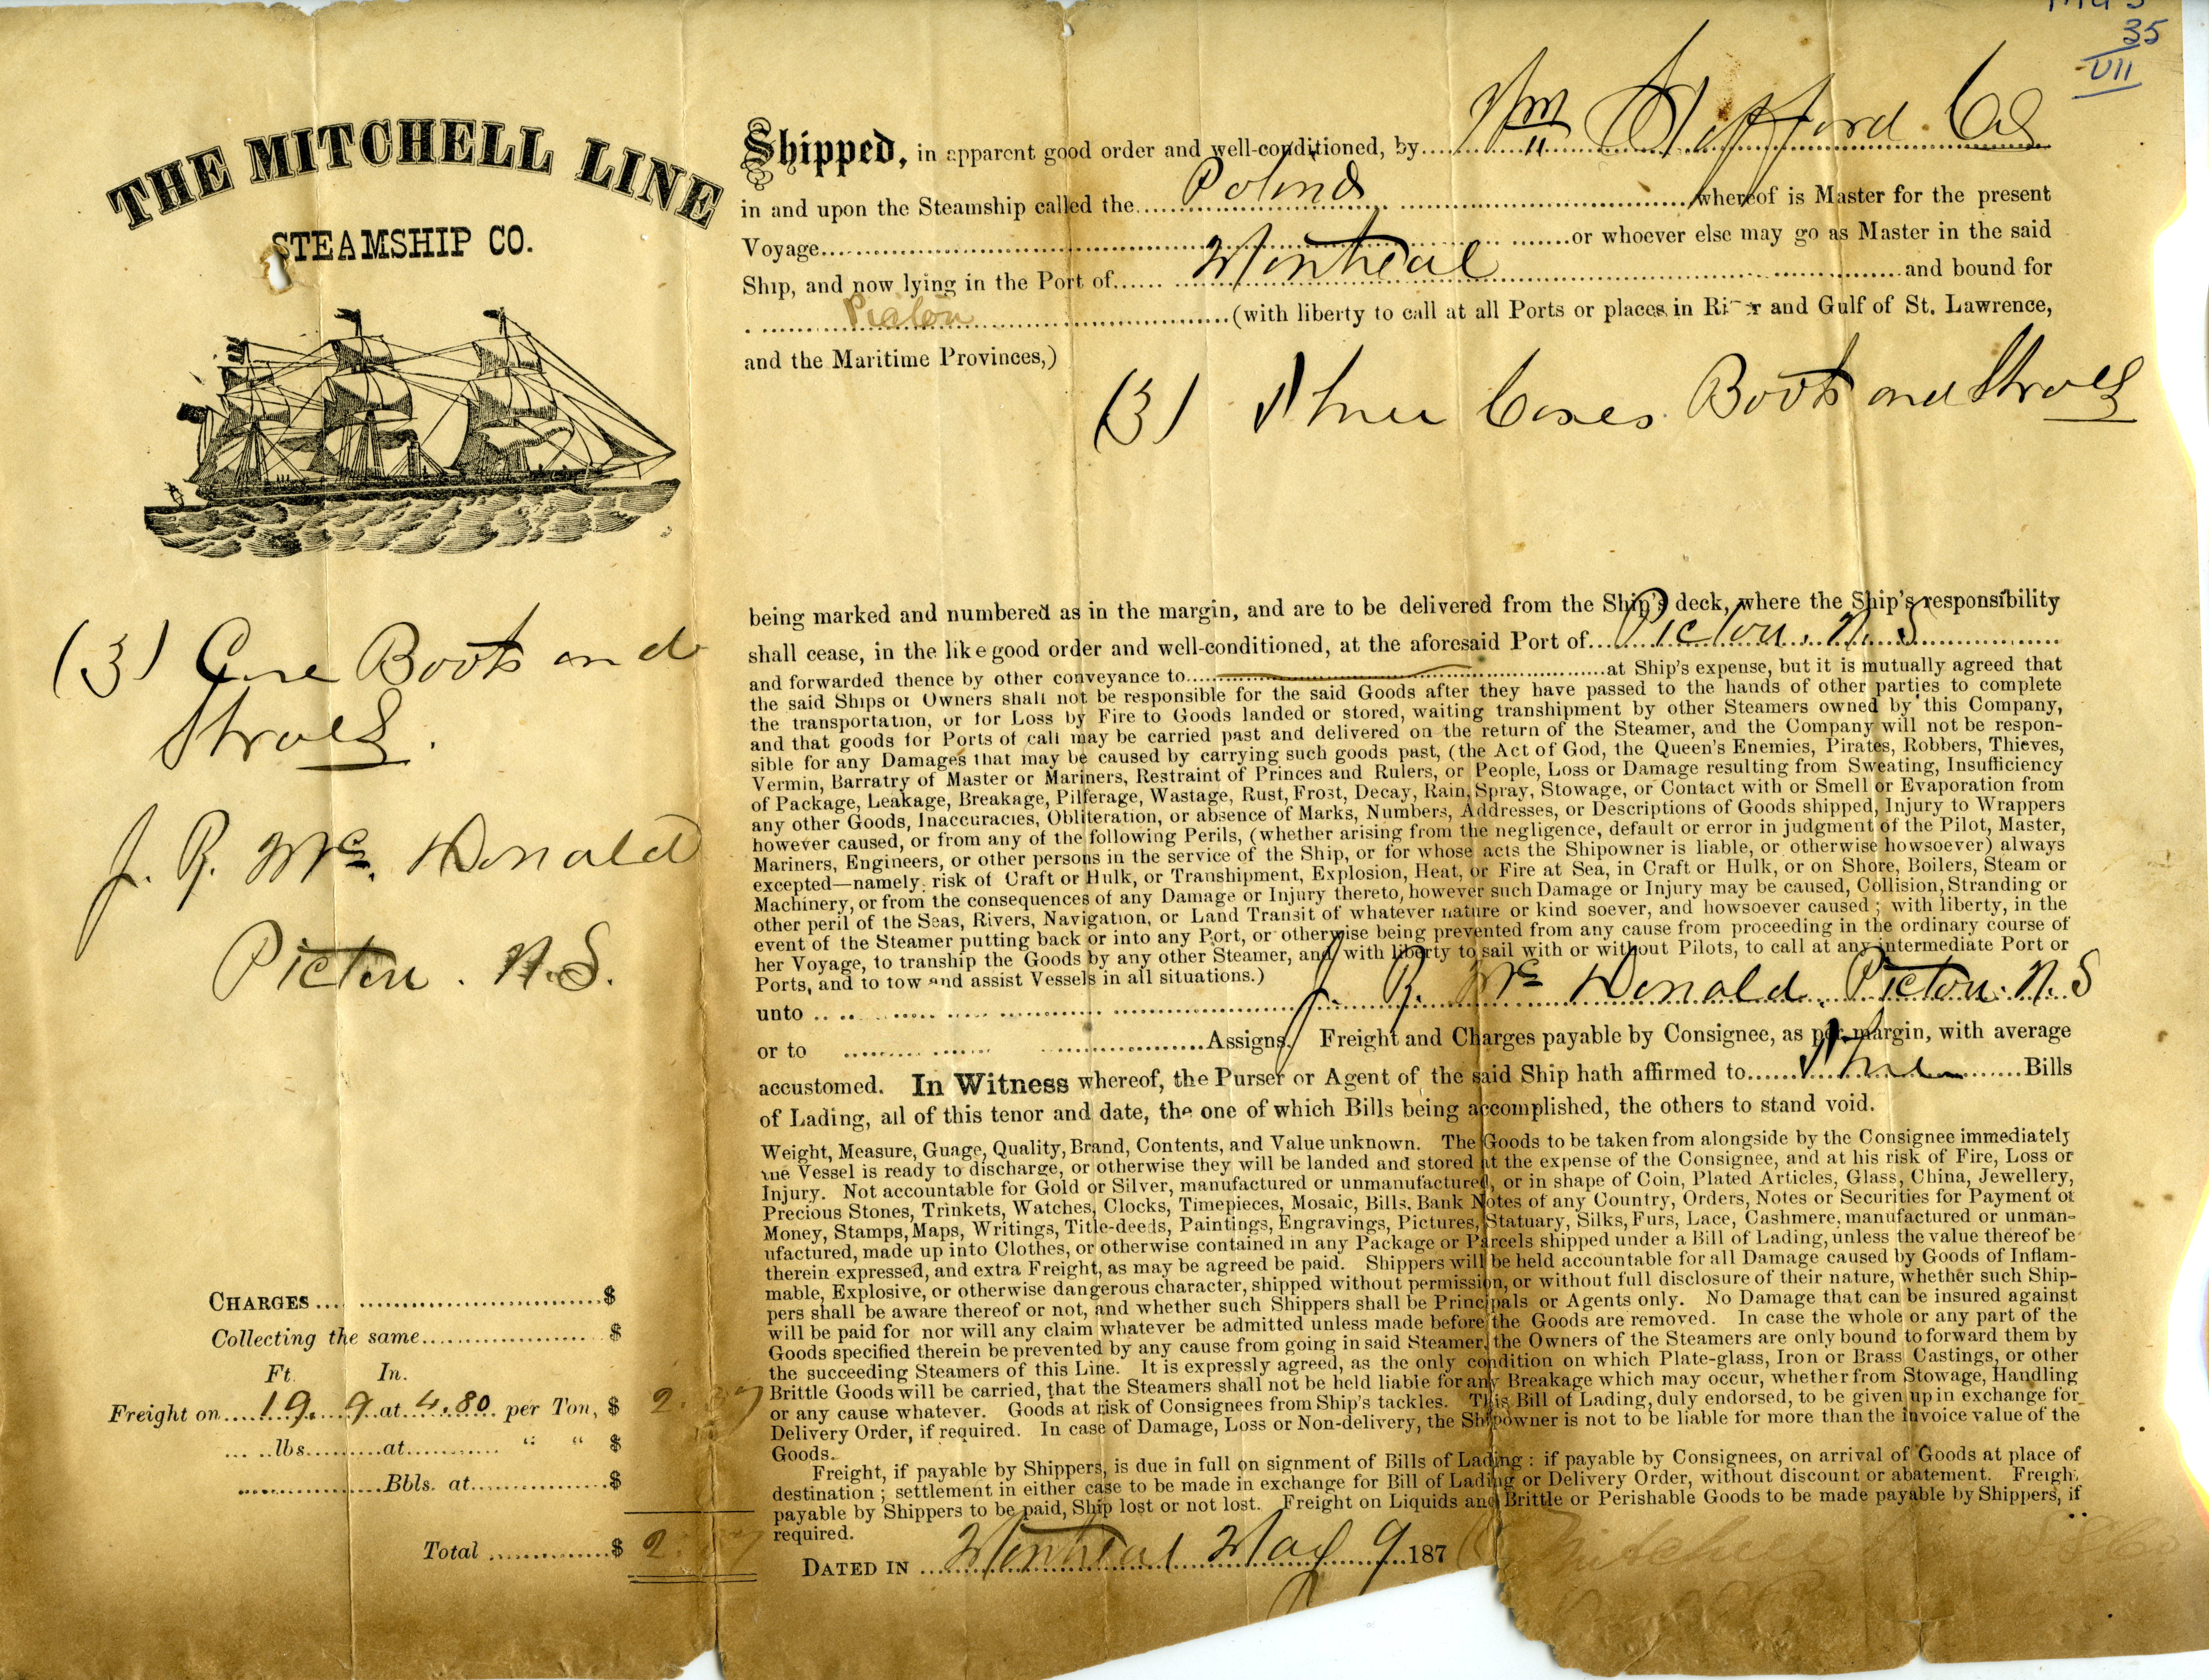 35
VII
THE MITCHELL LINE
STEAMSHIP CO.
Shipped, in apparent good order and well-conditioned, by Wm Stafford & Co
in and upon the Steamship called the Polino whereof is Master for the present
Voyage or whoever else may go as Master in the said
Ship, and now lying in the Port of Montreal and bound for
Pictou (with liberty to call at all Ports or places in River and Gulf of St. Lawrence,
and the Maritime Provinces,)
(3) Three Cases Boots and Shoes
being marked and numbered as in the margin, and are to be delivered from the Ship's deck, where the Ship's responsibility
shall cease, in the like good order and well-conditioned, at the aforesaid Port of Pictou. N. S
and forwarded thence by other conveyance to at Ship's expense, but it is mutually agreed that
the said Ships or Owners shall not be responsible for the said Goods after they have passed to the hands of other parties to complete
the transportation, or for Loss by Fire to Goods landed or stored, waiting transhipment by other Steamers owned by this Company,
and that goods for Ports of call may be carried past and delivered on the return of the Steamer, and the Company will not be respon-
sible for any Damages that may be caused by carrying such goods past, (the Act of God, the Queen's Enemies, Pirates, Robbers, Thieves,
Vermin, Barratry of Master or Mariners, Restraint of Princes and Rulers, or People, Loss or Damage resulting from Sweating, Insufficiency
of Package, Leakage, Breakage, Pilferage, Wastage, Rust, Frost, Decay, Rain, Spray, Stowage, or Contact with or Smell or Evaporation from
any other Goods, Inaccuracies, Obliteration, or absence of Marks, Numbers, Addresses, or Descriptions of Goods shipped, Injury to Wrappers
however caused, or from any of the following Perils, (whether arising from the negligence, default or error in judgment of the Pilot, Master,
Mariners, Engineers, or other persons in the service of the Ship, or for whose acts the Shipowner is liable, or otherwise howsoever) always
excepted—namely: risk of Craft or Hulk, or Transhipment, Explosion, Heat, or Fire at Sea, in Craft or Hulk, or on Shore, Boilers, Steam or
Machinery, or from the consequences of any Damage or Injury thereto, however such Damage or Injury may be caused, Collision, Stranding or
other peril of the Seas, Rivers, Navigation, or Land Transit of whatever nature or kind soever, and howsoever caused; with liberty, in the
event of the Steamer putting back or into any Port, or otherwise being prevented from any cause from proceeding in the ordinary course of
her Voyage, to tranship the Goods by any other Steamer, and with liberty to sail with or without Pilots, to call at any intermediate Port or
Ports, and to tow and assist Vessels in all situations.)
unto J. R. Mc Donald. Pictou. N. S
or to Assigns, Freight and Charges payable by Consignee, as per margin, with average
accustomed. In Witness whereof, the Purser or Agent of the said Ship hath affirmed to Three Bills
of Lading, all of this tenor and date, the one of which Bills being accomplished, the others to stand void.
Weight, Measure, Guage, Quality, Brand, Contents, and Value unknown. The Goods to be taken from alongside by the Consignee immediately
the Vessel is ready to discharge, or otherwise they will be landed and stored at the expense of the Consignee, and at his risk of Fire, Loss or
Injury. Not accountable for Gold or Silver, manufactured or unmanufactured, or in shape of Coin, Plated Articles, Glass, China, Jewellery,
Precious Stones, Trinkets, Watches, Clocks, Timepieces, Mosaic, Bills, Bank Notes of any Country, Orders, Notes or Securities for Payment of
Money, Stamps, Maps, Writings, Title-deeds, Paintings, Engravings, Pictures, Statuary, Silks, Furs, Lace, Cashmere, manufactured or unman-
ufactured, made up into Clothes, or otherwise contained in any Package or Parcels shipped under a Bill of Lading, unless the value thereof be
therein expressed, and extra Freight, as may be agreed be paid. Shippers will be held accountable for all Damage caused by Goods of Inflam-
mable, Explosive, or otherwise dangerous character, shipped without permission, or without full disclosure of their nature, whether such Ship-
pers shall be aware thereof or not, and whether such Shippers shall be Principals or Agents only. No Damage that can be insured against
will be paid for nor will any claim whatever be admitted unless made before the Goods are removed. In case the whole or any part of the
Goods specified therein be prevented by any cause from going in said Steamer, the Owners of the Steamers are only bound to forward them by
the succeeding Steamers of this Line. It is expressly agreed, as the only condition on which Plate-glass, Iron or Brass Castings, or other
Brittle Goods will be carried, that the Steamers shall not be held liable for any Breakage which may occur, whether from Stowage, Handling
or any cause whatever. Goods at risk of Consignees from Ship's tackles. This Bill of Lading, duly endorsed, to be given up in exchange for
Delivery Order, if required. In case of Damage, Loss or Non-delivery, the Shipowner is not to be liable for more than the invoice value of the
Goods.
Freight, if payable by Shippers, is due in full on signment of Bills of Lading: if payable by Consignees, on arrival of Goods at place of
destination; settlement in either case to be made in exchange for Bill of Lading or Delivery Order, without discount or abatement. Freight
payable by Shippers to be paid, Ship lost or not lost. Freight on Liquids and Brittle or Perishable Goods to be made payable by Shippers, if
required.
DATED IN Montreal May 9 187
(3) Case Boots and
Shoes.
J. R. Mc. Donald
Pictou. N.S.
CHARGES $
Collecting the same $
Ft. In.
Freight on 19. 9 at 4.80 per Ton, $ 2.
lbs. at " " $
Bbls. at $
Total $ 2.